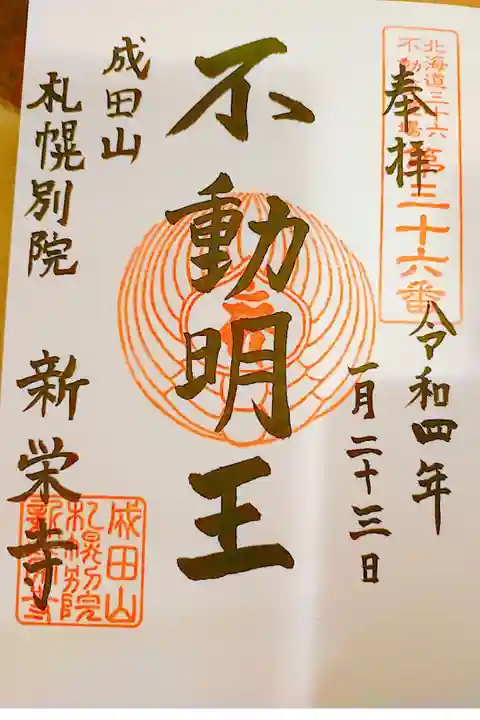 北海道三十六
不動霊場
第三十六番
奉拝
令和四年
一月二十三日
不動明王
成田山
札幌別院 新栄寺
成田山
札幌別院
新栄寺